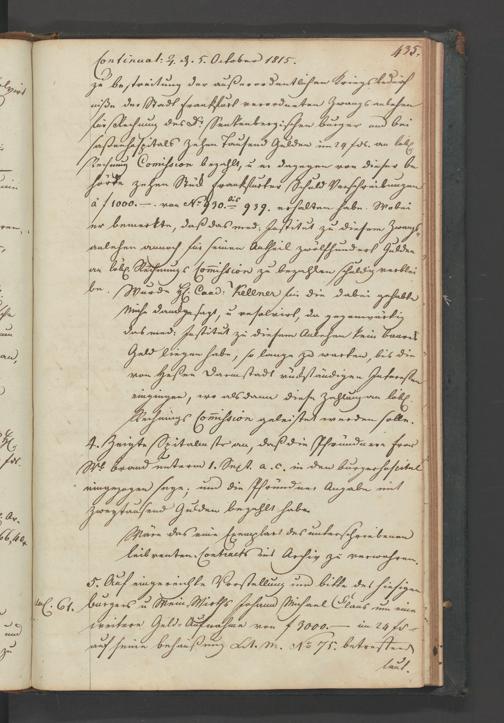 435.
Continuat: 2. d. 5. October 1815.
zu bestreitung der außerordentlichen Kriegsbedürf
niße der Stadt Frankfurt verordneten Zwangs anlehen
für Rechnung des Dr. Senkenbergischen burger und bei
saßenhospitals Zehen Tausend Gulden im 24 fds. an löbl.
Rechnungs Comission bezahlt, u er dagegen von dieser be
hörde zehen Stück Frankfurter Schuld Verschreibungen
à f 1000.— von No 930. bis 939. erhalten habe. Wobei
er bemerkte, daß das med. Institut zu diesem Zwangs
anlehen annoch für seinen Antheil zwölfhundert Gulden
an löbl. Rechnungs Commission zu bezahlen schuldig verblie
be. Wurde H. Cass: Kellner für die dabei gehabte
Mühe dankgesagt, u resolvirt, da gegenwärtig
das med. Institut zu diesem Anlehen kein baares
Geld liegen habe, so lange zu warten, bis die
von Heßen Darmstadt rückständigen Interessen
eingiengen, wo alsdann diese Zahlung an löbl.
Rechnungs Comission geleistet werden solle.
4. Zeigte Spitalmstr an, daß die Pfründnere Frau
brand unterm 1. Sept. a. c. in den burgerhospital
eingezogen seye, und die Pfründner Angabe mit
Zweytausend Gulden bezahlt habe
Wäre das eine Exemplar des unterschriebenen
leibrenten Contracts ins Archiv zu verwahren.
5. Auf eingereichte Vorstellung und bitte des hiesigen
burgers u Wein Wirths Johann Michael Claus um eine
weitere Geld Aufnahme von f 3000.— im 24 fs
auf seine behaußung Lit. M. No 75. betreffend
laut.